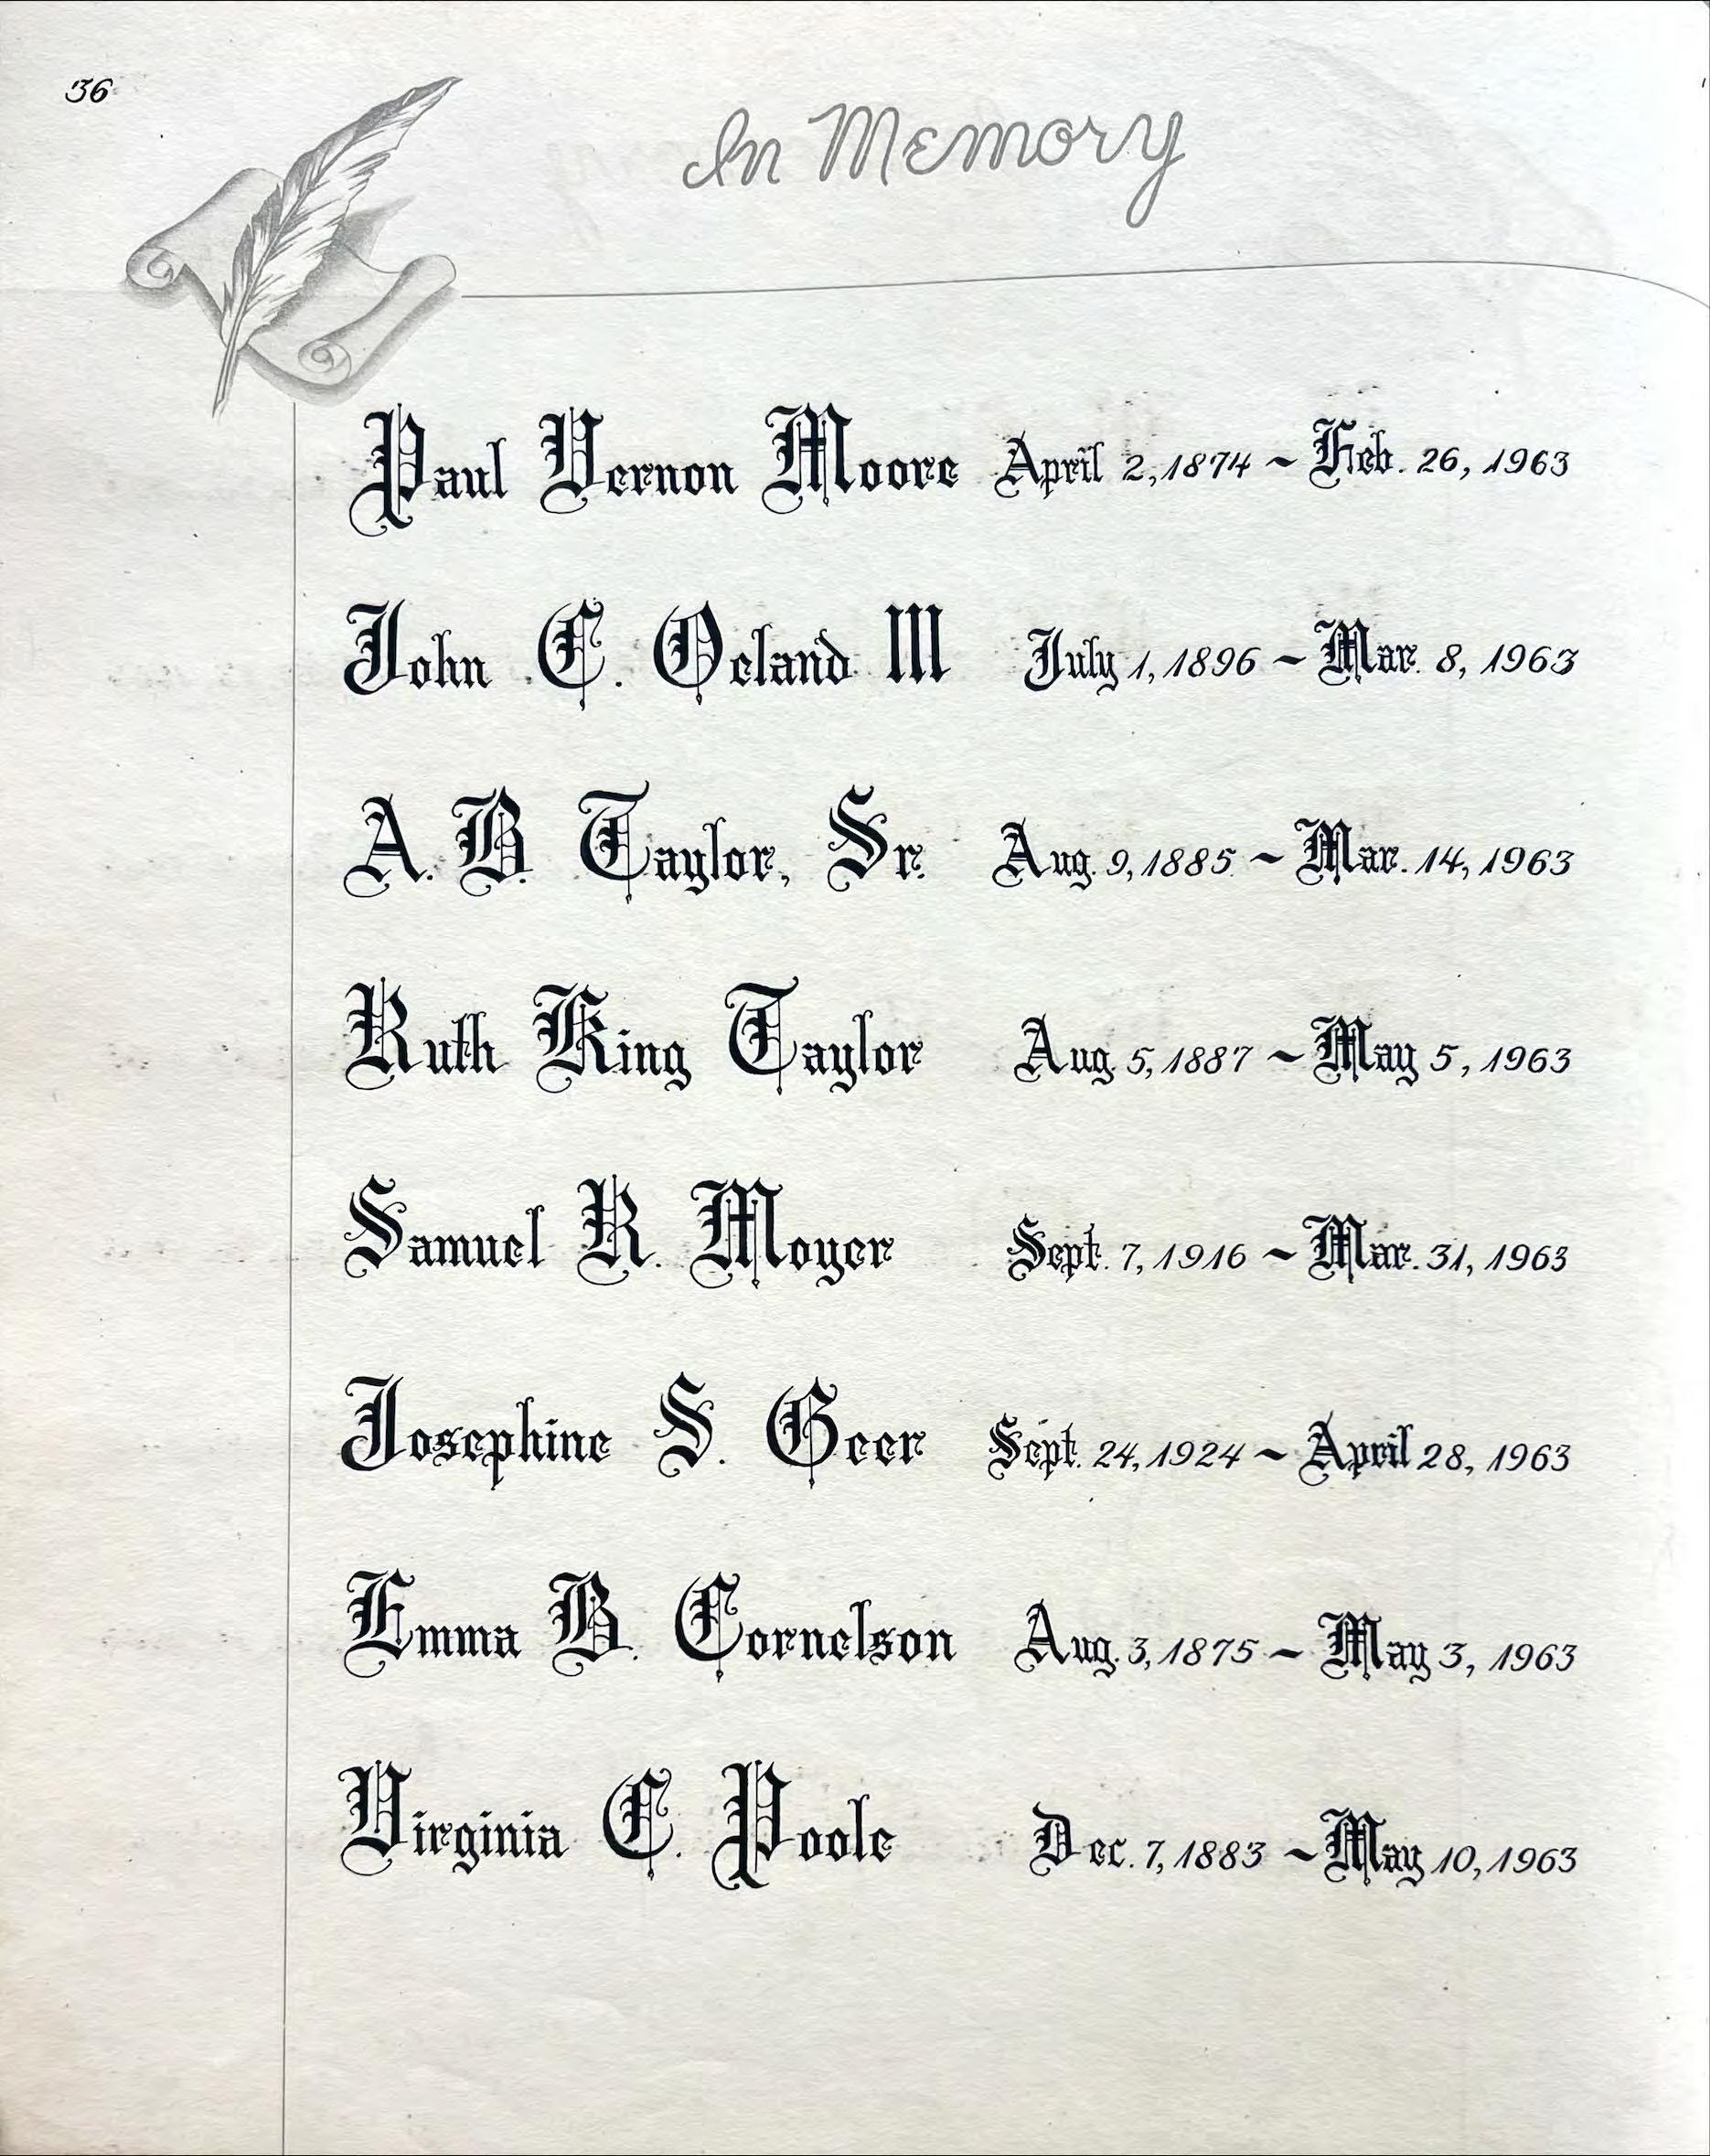 36
In Memory
Paul Vernon Moore April 2, 1874 ~ Feb. 26, 1963
John C. Oeland III July 1, 1896 ~ Mar. 8, 1963
A. B. Taylor, Sr. Aug. 9, 1885 ~ Mar. 14, 1963
Ruth King Taylor Aug. 5, 1887 ~ May 5, 1963
Samuel R. Moyer Sept. 7, 1916 ~ Mar. 31, 1963
Josephine S. Geer Sept. 24, 1924 ~ April 28, 1963
Emma B. Cornelson Aug. 3, 1875 ~ May 3, 1963
Virginia C. Poole Dec. 7, 1883 ~ May 10, 1963